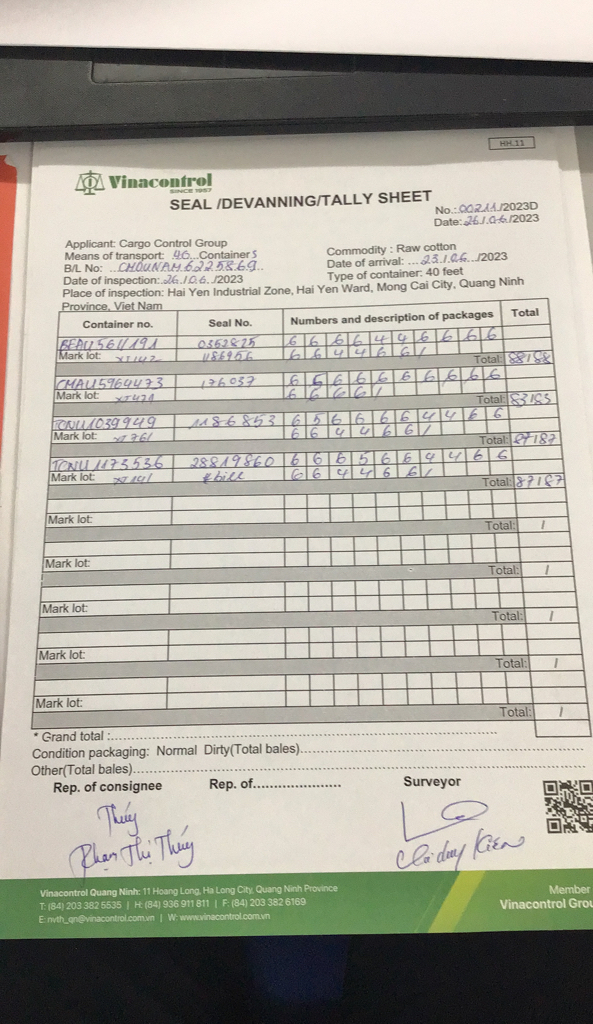 HH.11
Vinacontrol
SINCE 1957
SEAL /DEVANNING/TALLY SHEET
No.: 00211/2023D
Date: 26/06/2023
Applicant: Cargo Control Group
Means of transport: 46 Containers
Commodity : Raw cotton
B/L No: CHOUNAM6225869
Date of arrival: ... 23/06 /2023
Date of inspection: 26/06/2023
Type of container: 40 feet
Place of inspection: Hai Yen Industrial Zone, Hai Yen Ward, Mong Cai City, Quang Ninh
Province, Viet Nam
Container no. Seal No. Numbers and description of packages Total
BEAU5611191 0362825 6 6 6 6 4 4 6 6 6 6
Mark lot: 1186906 6 6 4 4 6 6 /
Total: 88/88
CMAU5964473 176037 6 5 6 6 6 6 6 6 6 6
Mark lot: 6 6 6 6 /
Total: 83/83
TCNU1039949 1186853 6 5 6 6 6 6 4 4 6 6
Mark lot: 6 6 4 4 6 6 /
Total: 87/87
TCNU1173536 28819860 6 6 6 5 6 6 4 4 6 6
Mark lot: #bill 6 6 4 4 6 6 /
Total: 87/87
Mark lot:
Total: /
Mark lot:
Total: /
Mark lot:
Total: /
Mark lot:
Total: /
Mark lot:
Total: /
* Grand total :
Condition packaging: Normal Dirty(Total bales)
Other(Total bales)
Rep. of consignee Rep. of Surveyor
Thúy
Phan Thị Thúy
Kiên
Vinacontrol Quang Ninh: 11 Hoang Long, Ha Long City, Quang Ninh Province
T: (84) 203 382 5535 | H: (84) 936 911 811 | F: (84) 203 382 6169
E: nvth_qn@vinacontrol.com.vn | W: www.vinacontrol.com.vn
Member
Vinacontrol Grou